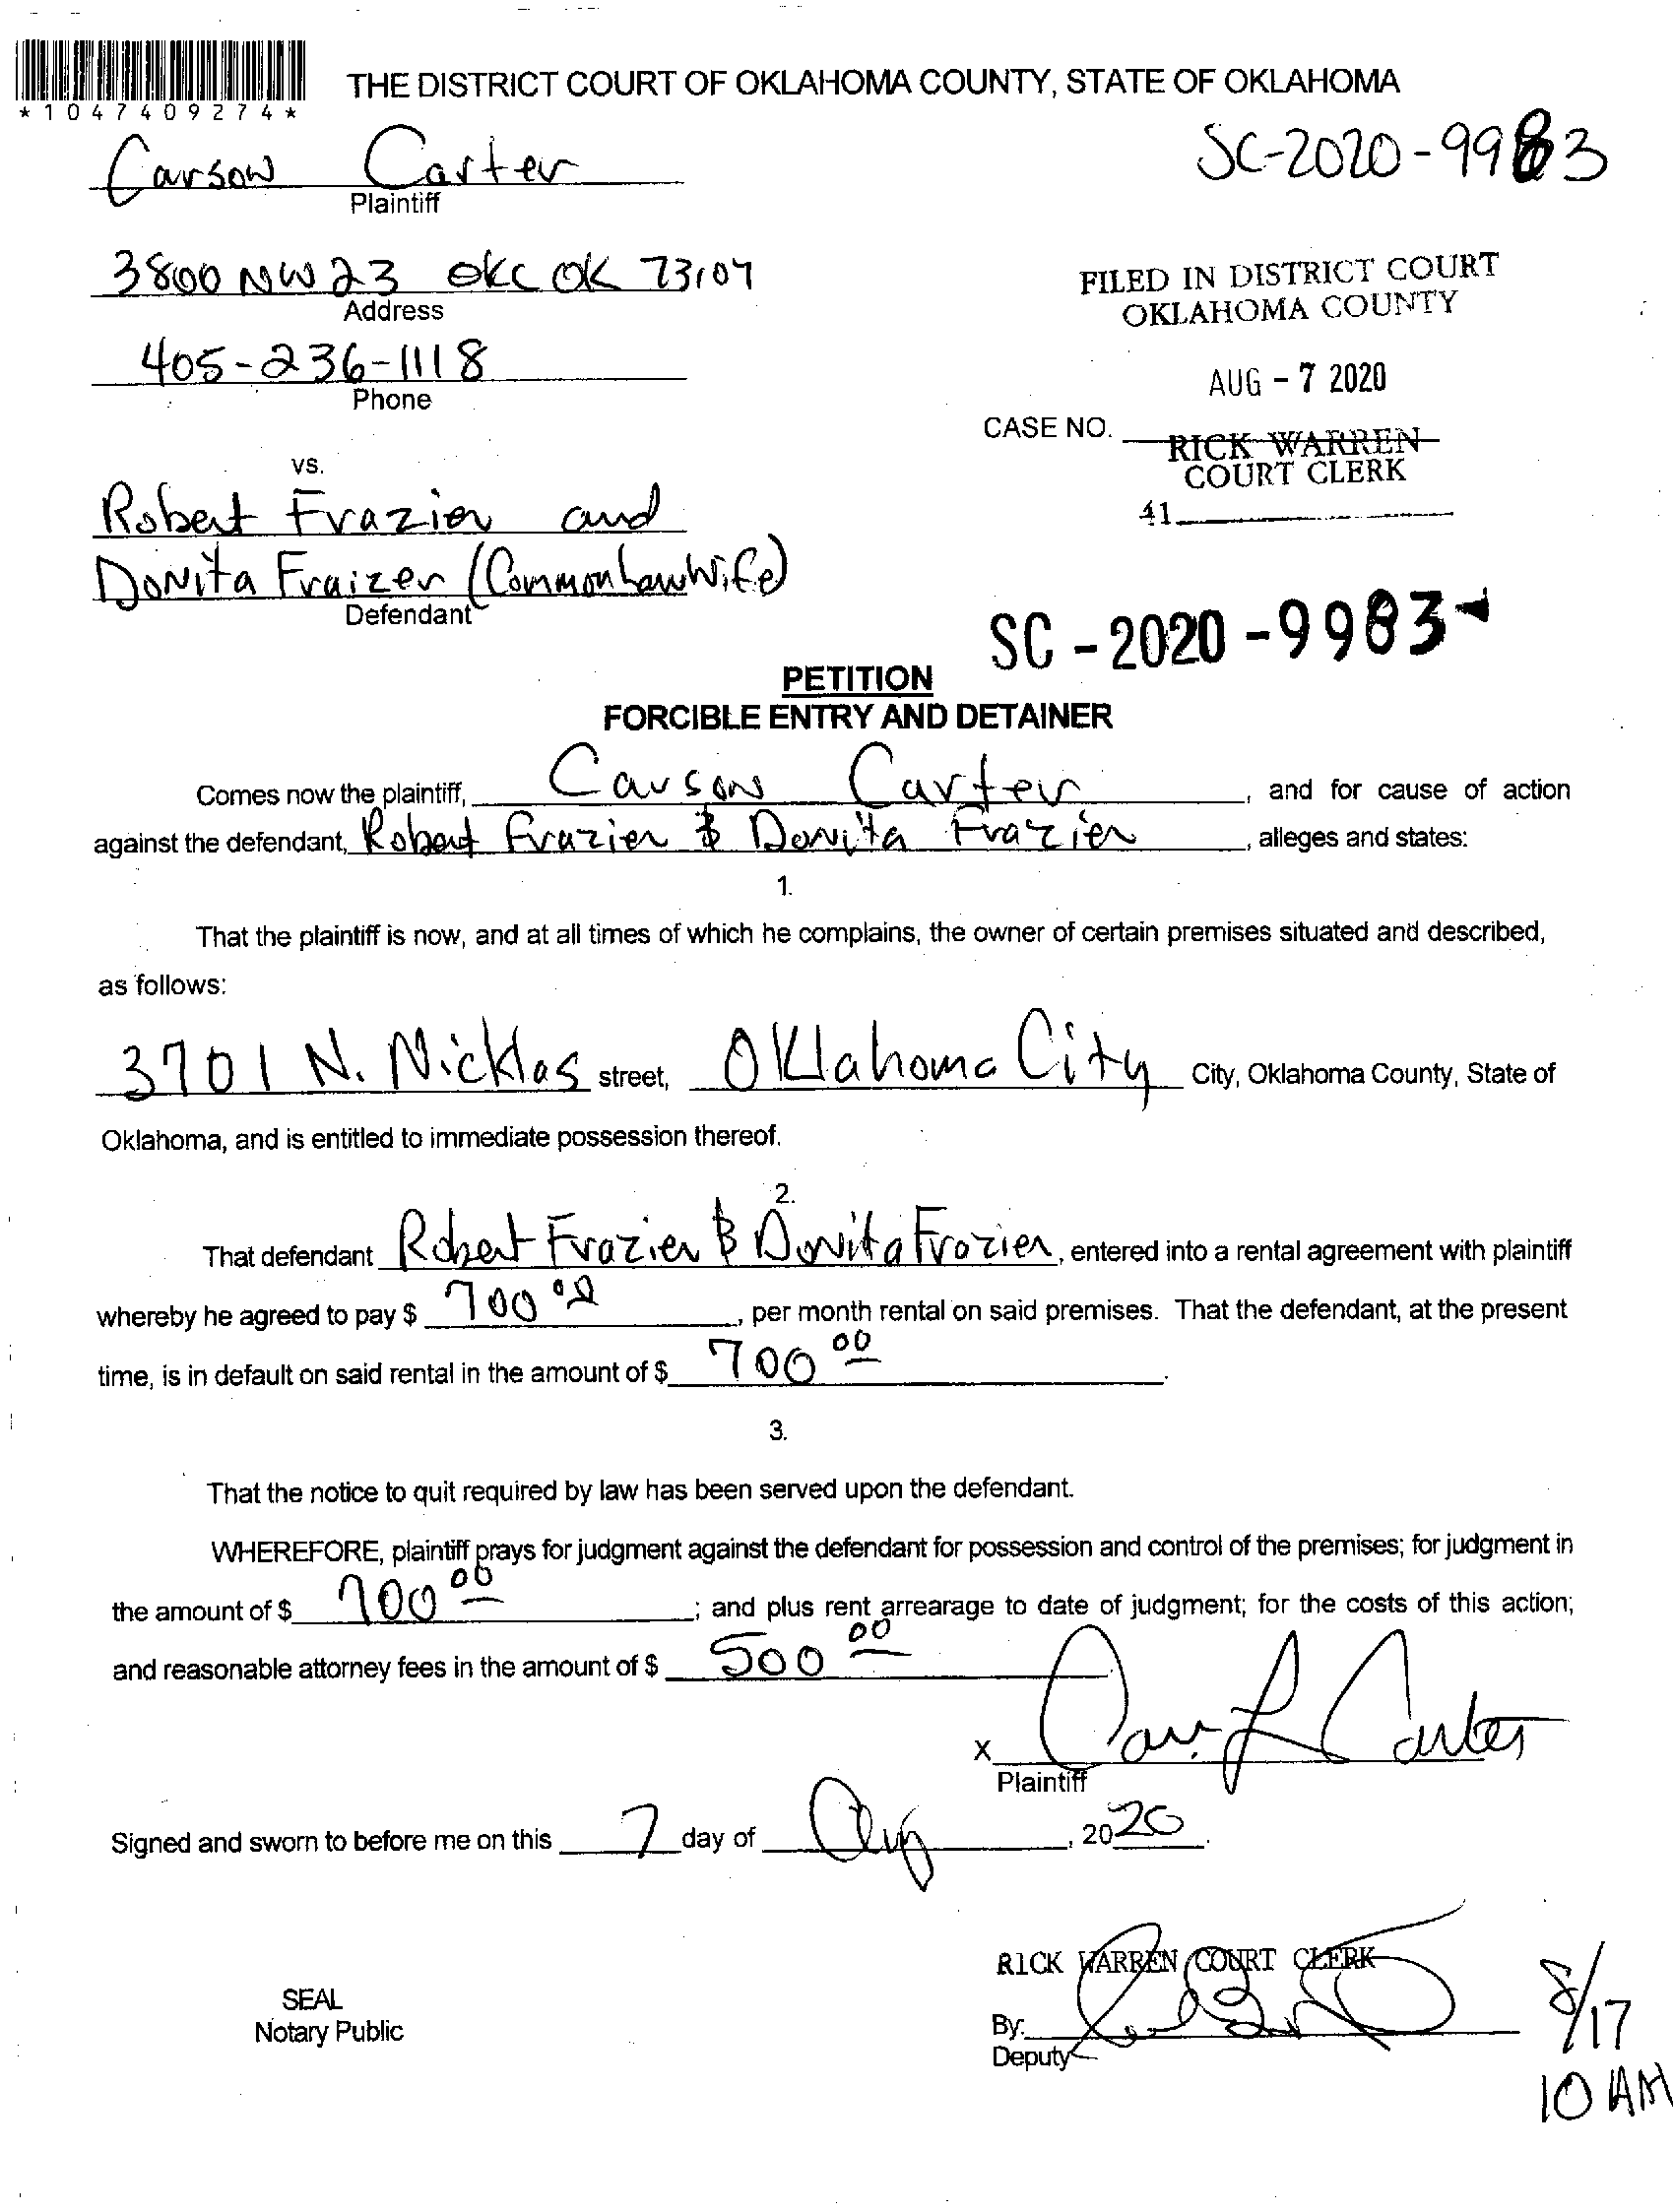 *1047409274*
THE DISTRICT COURT OF OKLAHOMA COUNTY, STATE OF OKLAHOMA
SC-2020-9983
Carson Carter
Plaintiff
3800 NW 23 OKC OK 73107
Address
FILED IN DISTRICT COURT
OKLAHOMA COUNTY
405-236-1118
Phone
AUG - 7 2020
CASE NO.
RICK WARREN
COURT CLERK
41
vs.
Robert Frazier and
Donita Fraizer (Common Law Wife)
Defendant
SC - 2020 - 9983
PETITION
FORCIBLE ENTRY AND DETAINER
Comes now the plaintiff, Carson Carter, and for cause of action
against the defendant, Robert Frazier & Donita Frazier, alleges and states:
1.
That the plaintiff is now, and at all times of which he complains, the owner of certain premises situated and described,
as follows:
3701 N. Nicklas street, Oklahoma City City, Oklahoma County, State of
Oklahoma, and is entitled to immediate possession thereof.
2.
That defendant Robert Frazier & Donita Frazier, entered into a rental agreement with plaintiff
whereby he agreed to pay $ 700 00, per month rental on said premises. That the defendant, at the present
time, is in default on said rental in the amount of $ 700 00.
3.
That the notice to quit required by law has been served upon the defendant.
WHEREFORE, plaintiff prays for judgment against the defendant for possession and control of the premises; for judgment in
the amount of $ 700 00; and plus rent arrearage to date of judgment; for the costs of this action;
and reasonable attorney fees in the amount of $ 500 00
X Carson L Carter
Plaintiff
Signed and sworn to before me on this 7 day of Aug, 2020.
RICK WARREN COURT CLERK
SEAL
Notary Public
By:
Deputy
8/17
10 AM